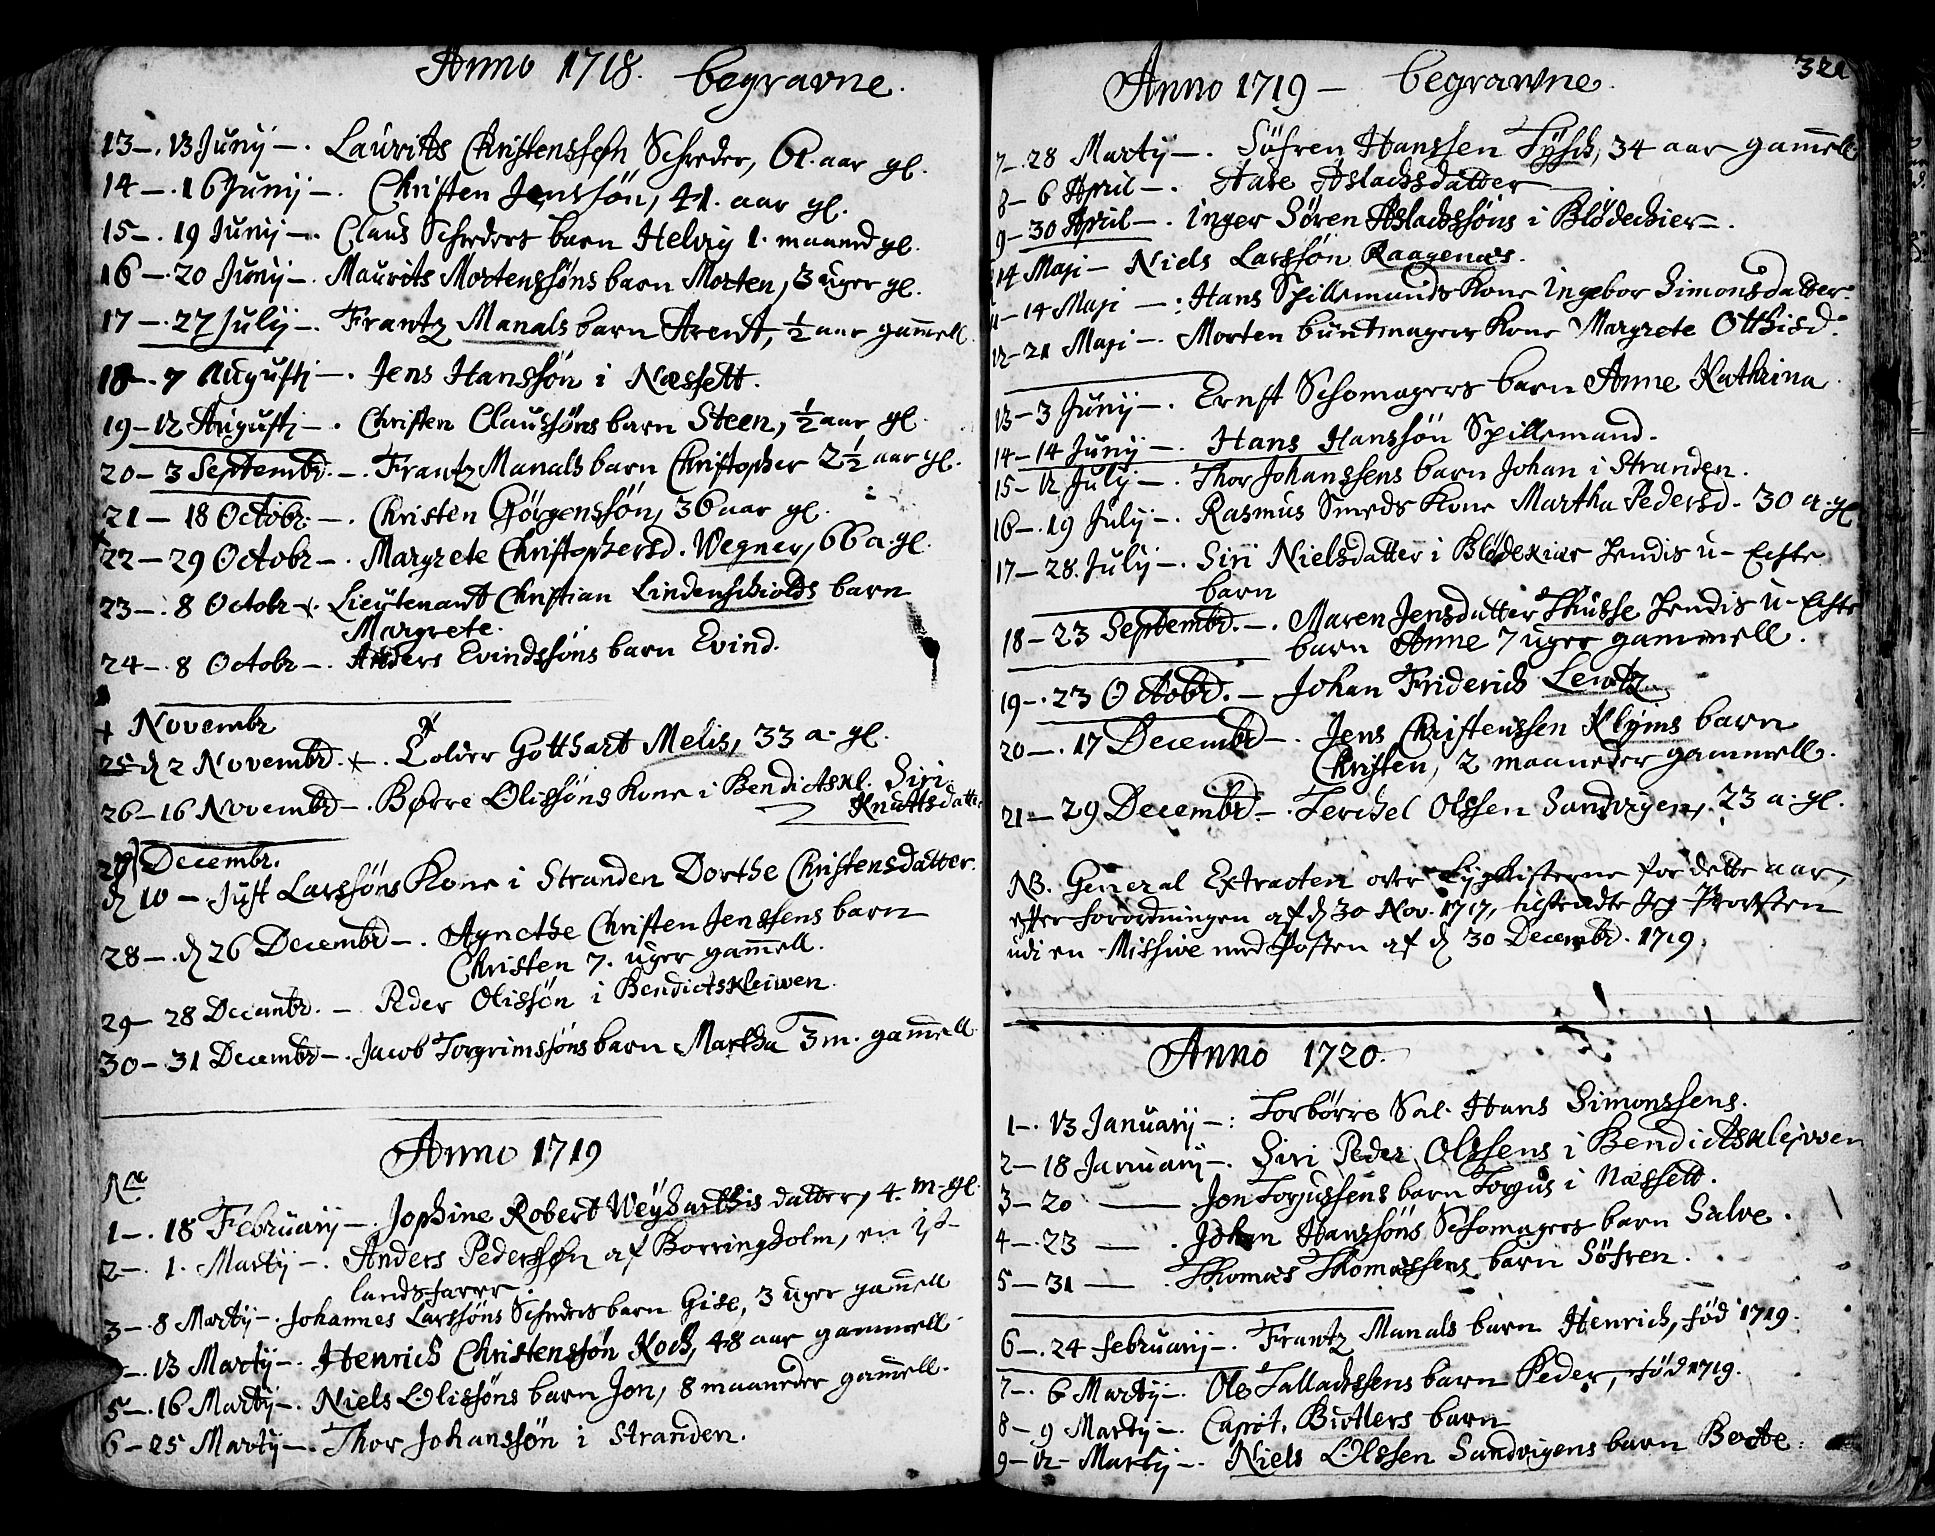 Anno 1718. begravne.
13 –. 13 Junij –. Laurits Christenssøn Schreder, 61. aar gl.
14 –. 16 Junij –. Christen Jenssøn, 41. aar gl.
15 –. 19 Junij –. Claus Schreders barn Helvig 1. maaned gl.
16 –. 20 Junij –. Maurits Mortenssøns barn Morten, 3 uger gl.
17 –. 27 Julij –. Frantz Manals barn Arent, ½ aar gam̄ell.
18 –. 7 Augustj –. Jens Hanssøn i Næssett.
19 – 12 Augustj –. Christen Claussøns barn Steen, ½ aar gl.
20 – 3 Septembr. –. Frantz Manals barn Christopher 2½ aar gl.
21 – 18 Octobr. –. Christen Gjörgenssøn, 36 aar gl.
22 – 29 Octobr –. Margrete Christophersd. Wegner, 66 a. gl.
23 –. 8 Octobr –. Lieutenant Christian Lindenschiolds barn
Margrete.
24 –. 8 Octobr –. Anders Evindssøns barn Evind.
+ Novembr
25 d 2 Novembr. –. Gotthart Melis, 33 a. gl.
26 – 16 Novembr –. Børre Olissøns Kone i Bendictskl. Siri
Knuttsdatter
27 Decembr.
d 10 – Just Larssøns Kone i Stranden Dorthe Christensdatter.
28 –. d 26 Decembr –. Agnethe Christen Jenssens barn
Christen 7. uger gam̄ell.
29 – 28 Decembr. – Peder Olissøn i Bendictskleiwen.
30 –. 31 Decembr –. Jacob Torgrimssøns barn Martha 3 m. gam̄ell
Anno 1719
1 –. 18 Februarij –. Jophine Robert Weÿharthis datter, 4. m. gl.
2 –. 1. Martij –. Anders Pederssøn af Borringholm, en is-
landsfarer.
3 –. 8 Martij –. Johannes Larssøns Schreders barn Gise, 3 uger gam̄ell
–. 13 Martij –. Henrich Christenssøn Koch, 48 aar gammell
5 –. 16 Martij –. Niels Olissøns barn Jon, 8 maaneder gam̄ell.
6 – 25 Martij –. Thor Johanssøn i Stranden.
Anno 1719 – begrawne. 321
7 – 28 Martij –. Söfren Hanssen Tÿsch, 34 aar gam̄ell.
8 – 6 April –. Aase Aslachsdatter
9 – 30 April –. Inger Sören Aslachssøns i Blödechier –.
14 Maji – Niels Larssøn Raagenæs.
11 – 14 Maji –: Hans Spillemands Kone Ingebor Simonsdatter.
12 – 21 Maji –. Morten buntmagers Kone Margrete Otthisd.
13 – 3 Junij –. Ernst Schomagers barn Anne Kathrina.
14 – 14 Junij –. Hans Hanssøn Spillemand.
15 – 12 Julij –. Thor Johanssens barn Johan i Stranden.
16 –. 19 Julij –. Rasmus Smeds Kone Martha Pedersd. 30 a. gl
17 – 28. Julij –. Siri Nielsdatter i Blödekier hendis u- Echte
barn
18 – 23 Septembr. –. Maren Jensdatter Thusse hendis u- Echte
barn Anne 7 uger gammell.
19 –. 23 Octobr. – Johan Friderich Lewtz.
20 –. 17 Decembr –. Jens Christenssen Klyms barn
Christen, 2 maaneder gammell.
21 – 29 Decembr –. Terchel Olssen Sandvigen, 23 a. gl.
NB. General Extracten over Lijgkisterne for dette aar,
efter forordningen af d 30 Nov. 1717, tilsendte Jeg Provsten
udi en Missive med Posten af d 30 Decembr. 1719.
Anno 1720.
1 –. 13 Januarij –: Torbörre Sal. Hans Simonssens.
2 – 18 Januarij –. Siri Peder Olssens i Bendictsklejwen
3 – 20 — Jon Torjussens barn Torgus i Næssett.
4 –. 23 — . Johan Hanssøns Schomagers barn Salve.
5 – 31 — . Thomas Thomassens barn Söfren.
6 –. 24 februarij –. Frantz Manals barn Henrich, född 1719.
7 –. 6 Martij –. Ole Tallachssens barn Peder, född 1719.
8 – 9 Martij –. Capit. Butlers barn
9 – 12 – Martij –. Niels Olssen Sandvigens barn Berte.